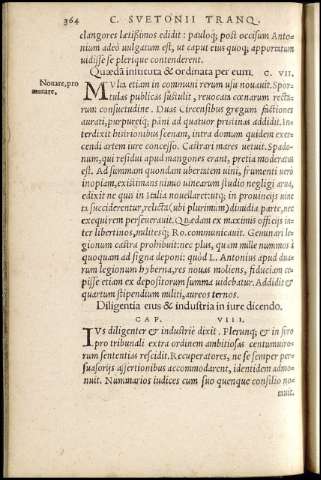 364 C. SVETONII TRANQ.
clangores lætißimos edidit: pauloq; post occisum Anto-
nium adeò uulgatum est, ut caput eius quoq; apportatum
uidisse se plerique contenderent.
Quædã instituta & ordinata per eum. C. VII.
Nouare, pro
mutare.
MVlta etiam in communi rerum usu nouauit. Spor-
tulas publicas sustulit, reuocata cœnarum recta-
rum consuetudine. Duas Circensibus gregum factiones
aurati, purpureiq; pãni ad quatuor pristinas addidit. In-
terdixit histrionibus scenam, intra domum quidem exer-
cendi artem iure concesso. Castrari mares uetuit. Spado-
num, qui residui apud mangones erant, pretia moderatus
est. Ad summam quondam ubertatem uini, frumenti uero
inopiam, existimans nimio uinearum studio negligi arua,
edixit ne quis in Italia nouellaret: utq; in prouincijs uine-
ta succiderentur, relicta (ubi plurimum) dimidia parte, nec
exequi rem perseuerauit. Quædam ex maximis officijs in-
ter libertinos, militesq; Ro. communicauit. Geminari le-
gionum castra prohibuit: nec plus, quàm mille nummos à
quoquam ad signa deponi: quòd L. Antonius apud dua-
rum legionum hyberna, res nouas moliens, fiduciam cœ-
pisse etiam ex depositorum summa uidebatur. Addidit &
quartum stipendium militi, aureos ternos.
Diligentia eius & industria in iure dicendo.
CAP. VIII.
IVs diligenter & industriè dixit. Plerunq; & in foro
pro tribunali extra ordinem ambitiosas centumuiro-
rum sententias rescidit. Recuperatores, ne se semper per-
suasorijs assertionibus accommodarent, identidem admo-
nuit. Nummarios iudices cum suo quenque consilio no-
tauit.